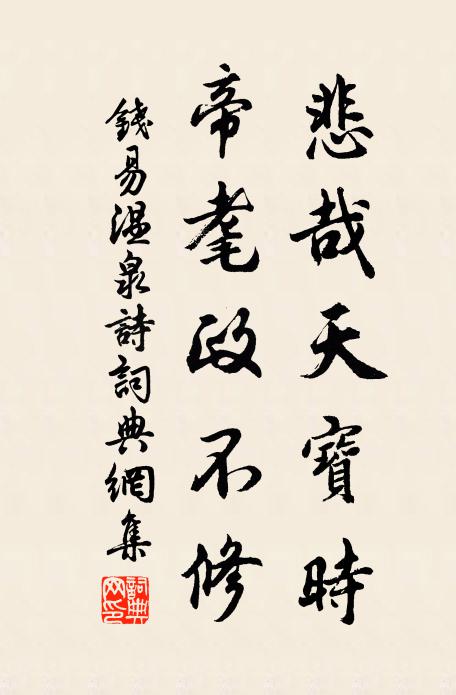 悲哉天寶時
帝耄政不修
錢易溫泉詩詞典網集
詞典网印